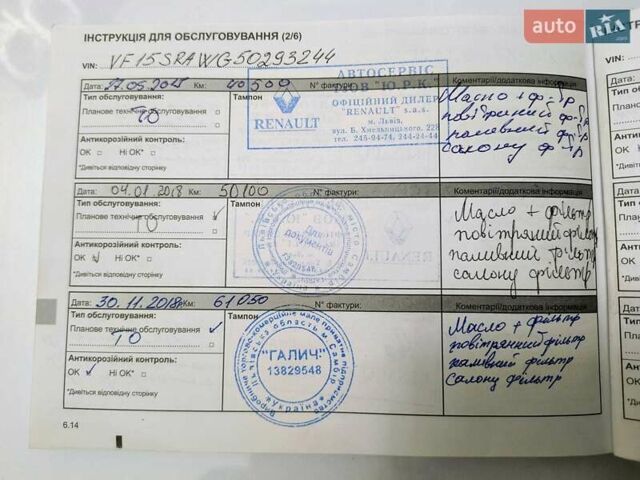 auto RIA.com
ІНСТРУКЦІЯ ДЛЯ ОБСЛУГОВУВАННЯ (2/6)
VIN: VF15SRAWG50293244
VIN:
Дата: Км: 40 500 N° фактури: Коментарії/додаткова інформація
Тип обслуговування: Тампон
Планове технічне обслуговування
ТО
Антикорозійний контроль:
OK Ні OK*
*Дивіться відповідну сторінку
RENAULT
АВТОСЕРВІС
ТОВ "Ю.Р.К."
ОФІЦІЙНИЙ ДИЛЕР
"RENAULT" s.a.s.
м. Львів,
вул. Б. Хмельницького, 228
тел. 245-94-74, 244-24-44
Масло + ф-тр
повітряний ф-тр
паливний ф-тр
салону ф-тр
Дата: 04.01.2018 Км: 50100 N° фактури: Коментарії/додаткова інформація
Тип обслуговування: Тампон
Планове технічне обслуговування
ТО
Антикорозійний контроль:
OK Ні OK*
*Дивіться відповідну сторінку
Для документів
13829548
RENAULT
Масло + фільтр
повітряний фільтр
паливний фільтр
салону фільтр
Дата: 30.11.2018 Км: 61050 N° фактури: Коментарії/додаткова інформація
Тип обслуговування: Тампон
Планове технічне обслуговування
ТО
Антикорозійний контроль:
OK Ні OK*
*Дивіться відповідну сторінку
Виробниче торговокомерційне мале приватне підприємство
Львівська область м. Самбір
"ГАЛИЧ"
13829548
*Україна*
Масло + фільтр
повітряний фільтр
паливний фільтр
салону фільтр
6.14